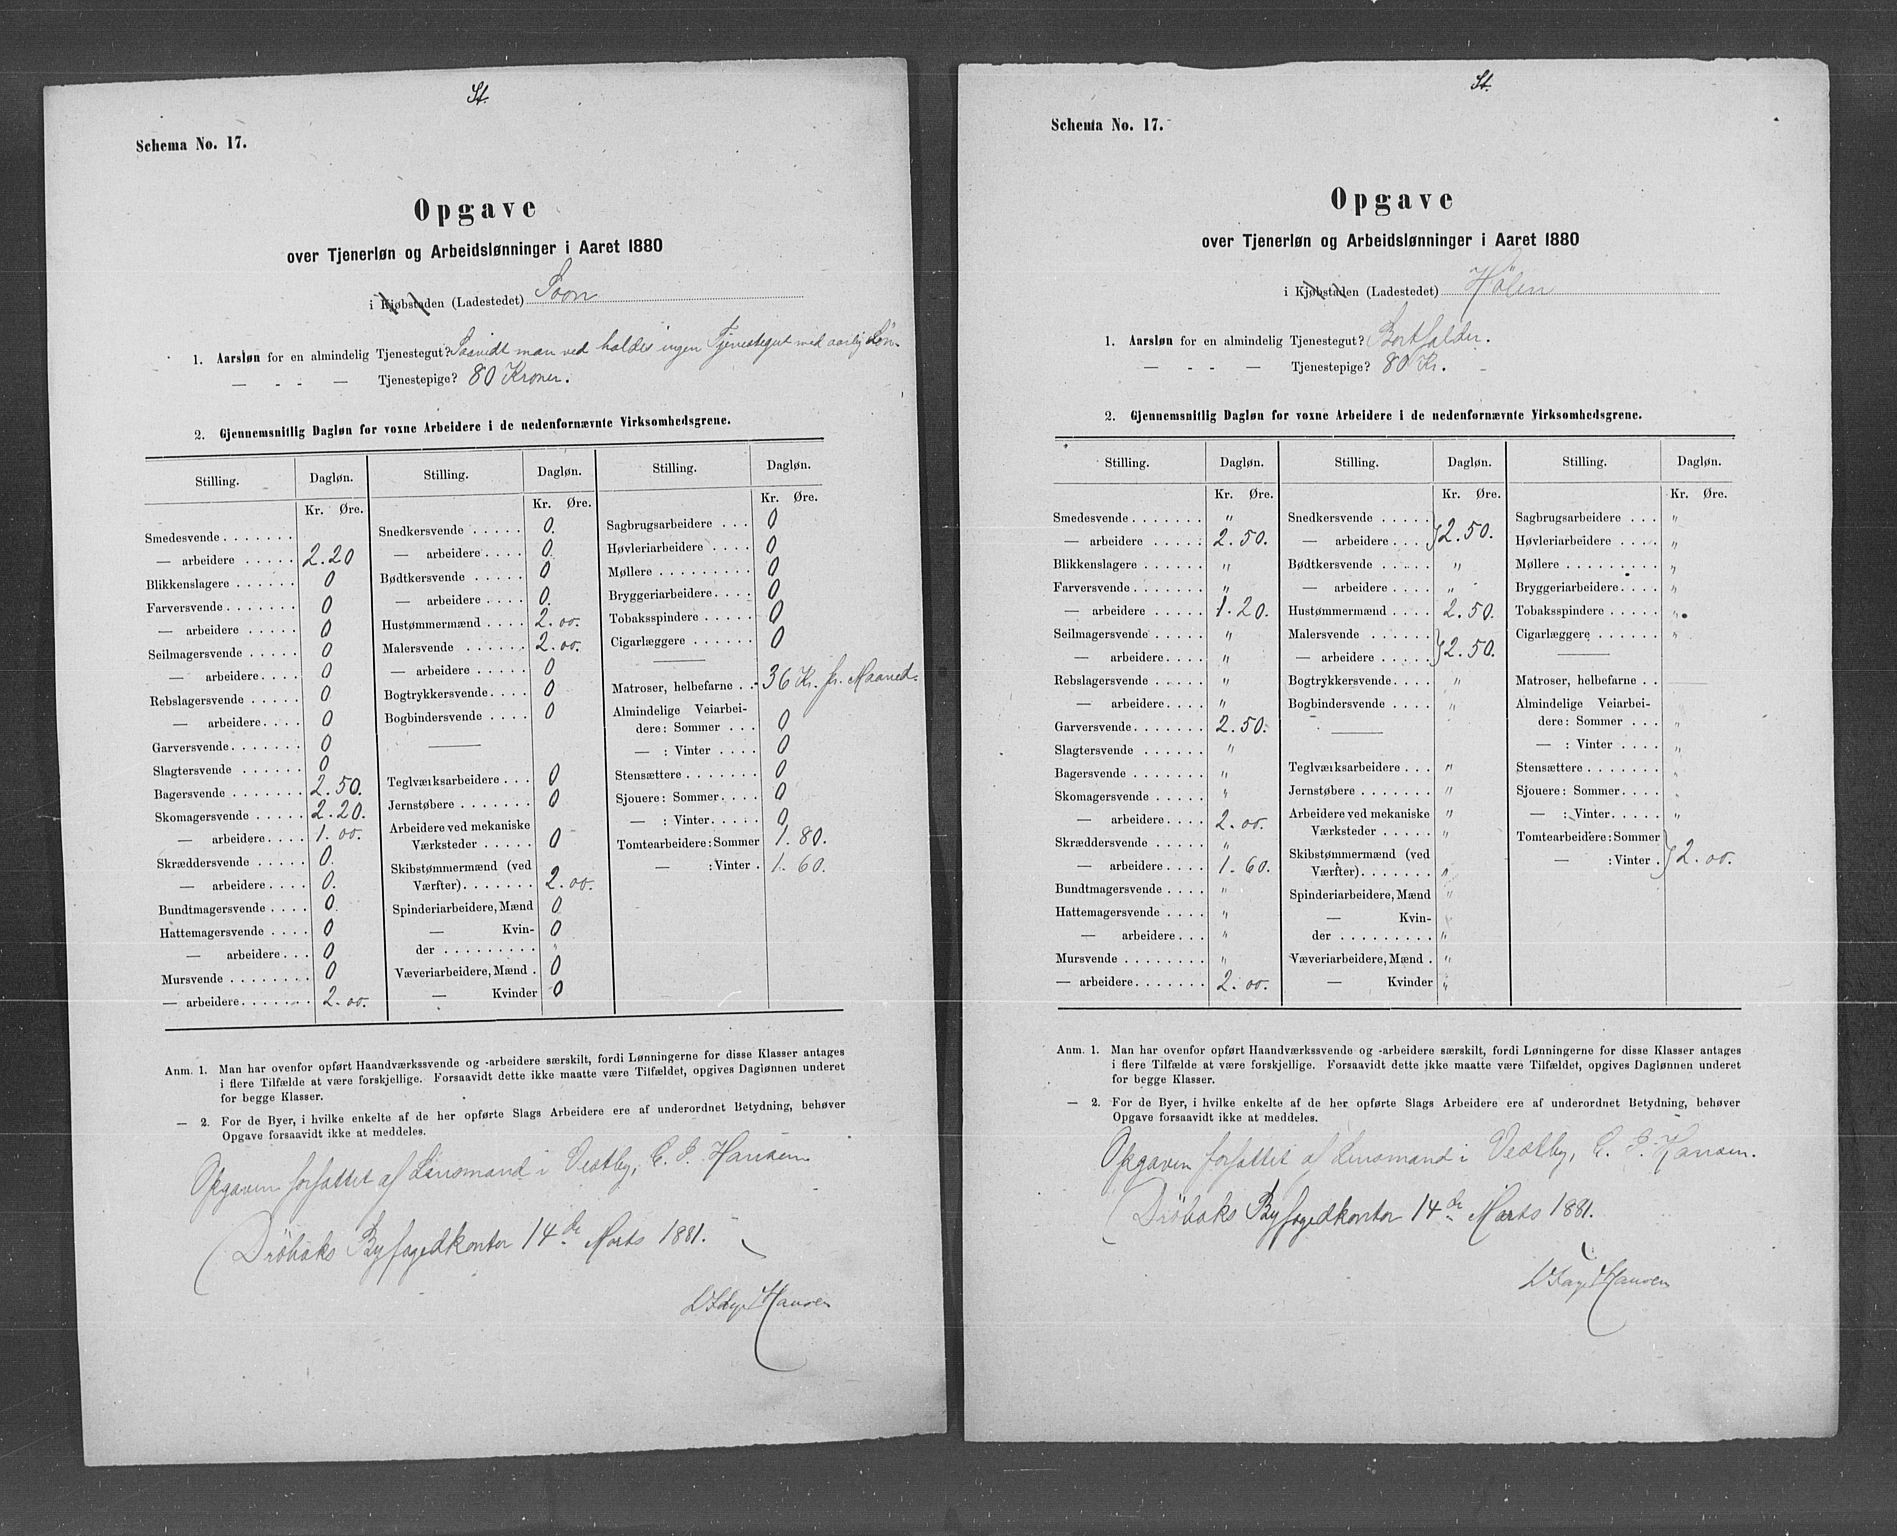 St.
Schema No. 17.
Opgave
over Tjenerløn og Arbeidslønninger i Aaret 1880
i Kjøbstaden (Ladestedet) Soon
1. Aarsløn for en almindelig Tjenestegut? Saavidt man ved holdes ingen Tjenestegut med aarlig Løn.
— - - — Tjenestepige? 80 Kroner.
2. Gjennemsnitlig Dagløn for voxne Arbeidere i de nedenfornævnte Virksomhedsgrene.
Stilling. Dagløn.
Kr. Øre.
Smedesvende . . . . . . .
— arbeidere . . . . . 2.20
Blikkenslagere . . . . . . 0
Farversvende . . . . . . . 0
— arbeidere . . . . . 0
Seilmagersvende . . . . . 0
— arbeidere . . . . 0
Rebslagersvende . . . . . 0
— arbeidere . . . . 0
Garversvende . . . . . . . 0
Slagtersvende . . . . . . 0
Bagersvende . . . . . . . 2.50.
Skomagersvende . . . . . 2.20.
— arbeidere . . . . 1.00.
Skræddersvende . . . . . 0.
— arbeidere . . . . 0.
Bundtmagersvende . . . . 0.
Hattemagersvende . . . . 0
— arbeidere . . . 0
Mursvende . . . . . . . . 0
— arbeidere . . . . . . . 2.00.
Stilling. Dagløn.
Kr. Øre.
Snedkersvende . . . . . 0.
— arbeidere . . . . 0.
Bødtkersvende . . . . . 0
— arbeidere . . . . 0.
Hustømmermænd . . . . 2.00.
Malersvende . . . . . . 2.00.
— arbeidere . . . . . 0
Bogtrykkersvende . . . . 0
Bogbindersvende . . . . 0
Teglværksarbeidere . . . 0
Jernstøbere . . . . . . . 0
Arbeidere ved mekaniske
Værksteder . . . . . 0
Skibstømmermænd (ved
Værfter) . . . . . . . 2.00.
Spinderiarbeidere, Mænd 0
— Kvin- 0
der . . . . . . . . . "
Væveriarbeidere, Mænd . 0
— Kvinder 0
Stilling. Dagløn.
Kr. Øre.
Sagbrugsarbeidere . . . 0
Høvleriarbeidere . . . . 0
Møllere . . . . . . . . . 0
Bryggeriarbeidere . . . . 0
Tobaksspindere . . . . . 0
Cigarlæggere . . . . . . 0
Matroser, helbefarne . . 36 Kr. pr. Maaned.
Almindelige Veiarbei-
dere: Sommer . . . 0
— : Vinter . . . . 0
Stensættere . . . . . . . 0
Sjouere: Sommer . . . . 0
— : Vinter . . . . . 0
Tomtearbeidere: Sommer 1.80.
— : Vinter . 1.60.
Anm. 1. Man har ovenfor opført Haandværkssvende og -arbeidere særskilt, fordi Lønningerne for disse Klasser antages
i flere Tilfælde at være forskjellige. Forsaavidt dette ikke maatte være Tilfældet, opgives Daglønnen underet
for begge Klasser.
— 2. For de Byer, i hvilke enkelte af de her opførte Slags Arbeidere ere af underordnet Betydning, behøver
Opgave forsaavidt ikke at meddeles.
Opgaven forfattet af Lensmand i Vestby, C. J. Hansen.
Drøbaks Byfogedkontor 14de Marts 1881.
Hansen
St.
Schema No. 17.
Opgave
over Tjenerløn og Arbeidslønninger i Aaret 1880
i Kjøbstaden (Ladestedet) Hölen
1. Aarsløn for en almindelig Tjenestegut? Bortfalder.
— - - — Tjenestepige? 80 Kr.
2. Gjennemsnitlig Dagløn for voxne Arbeidere i de nedenfornævnte Virksomhedsgrene.
Stilling. Dagløn.
Kr. Øre.
Smedesvende . . . . . . . "
— arbeidere . . . . . 2.50.
Blikkenslagere . . . . . . "
Farversvende . . . . . . . "
— arbeidere . . . . . 1.20.
Seilmagersvende . . . . . "
— arbeidere . . . . "
Rebslagersvende . . . . . "
— arbeidere . . . . "
Garversvende . . . . . . . 2.50.
Slagtersvende . . . . . . "
Bagersvende . . . . . . . "
Skomagersvende . . . . . "
— arbeidere . . . . 2.00.
Skræddersvende . . . . . "
— arbeidere . . . . 1.60.
Bundtmagersvende . . . . "
Hattemagersvende . . . . "
— arbeidere . . . "
Mursvende . . . . . . . . "
— arbeidere . . . . . . . 2.00.
Stilling. Dagløn.
Kr. Øre.
Snedkersvende . . . . .
— arbeidere . . . . } 2.50.
Bødtkersvende . . . . . "
— arbeidere . . . . "
Hustømmermænd . . . . 2.50.
Malersvende . . . . . .
— arbeidere . . . . . } 2.50.
Bogtrykkersvende . . . . "
Bogbindersvende . . . . "
Teglværksarbeidere . . . "
Jernstøbere . . . . . . . "
Arbeidere ved mekaniske
Værksteder . . . . . "
Skibstømmermænd (ved
Værfter) . . . . . . . "
Spinderiarbeidere, Mænd "
— Kvin-
der . . . . . . . . . "
Væveriarbeidere, Mænd . "
— Kvinder "
Stilling. Dagløn.
Kr. Øre.
Sagbrugsarbeidere . . . "
Høvleriarbeidere . . . . "
Møllere . . . . . . . . . "
Bryggeriarbeidere . . . . "
Tobaksspindere . . . . . "
Cigarlæggere . . . . . . "
Matroser, helbefarne . . —
Almindelige Veiarbei-
dere: Sommer . . . . "
— : Vinter . . . . "
Stensættere . . . . . . . "
Sjouere: Sommer . . . . "
— : Vinter . . . . . "
Tomtearbeidere: Sommer
— : Vinter . } 2.00.
Anm. 1. Man har ovenfor opført Haandværkssvende og -arbeidere særskilt, fordi Lønningerne for disse Klasser antages
i flere Tilfælde at være forskjellige. Forsaavidt dette ikke maatte være Tilfældet, opgives Daglønnen underet
for begge Klasser.
— 2. For de Byer, i hvilke enkelte af de her opførte Slags Arbeidere ere af underordnet Betydning, behøver
Opgave forsaavidt ikke at meddeles.
Opgaven forfattet af Lensmand i Vestby, C. J. Hansen.
Drøbaks Byfogedkontor 14de Marts 1881.
Hansen